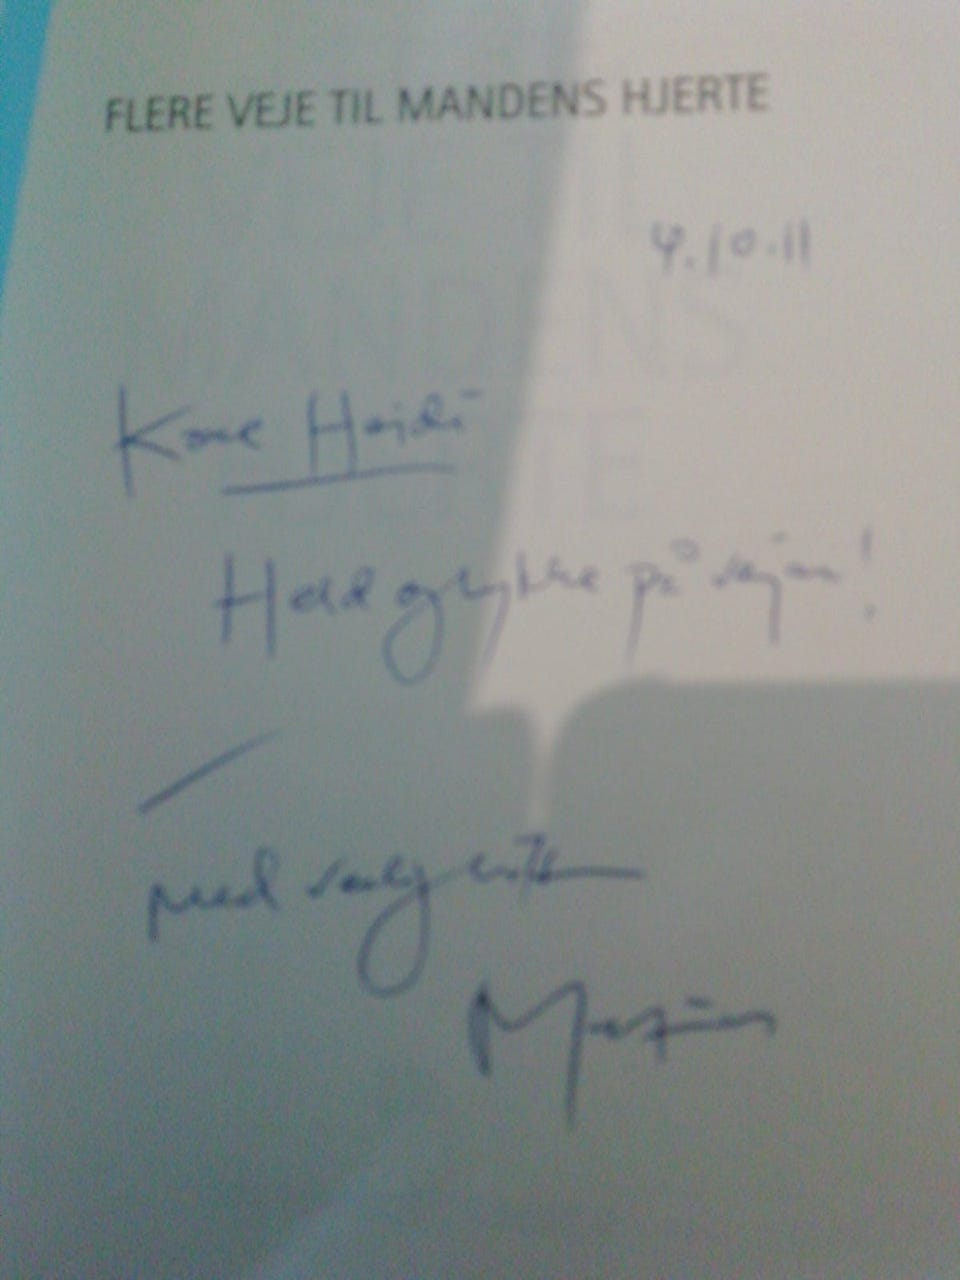 FLERE VEJE TIL MANDENS HJERTE
4.10.11
Kære Heidi
Held og lykke på vejen!
Med venlig hilsen